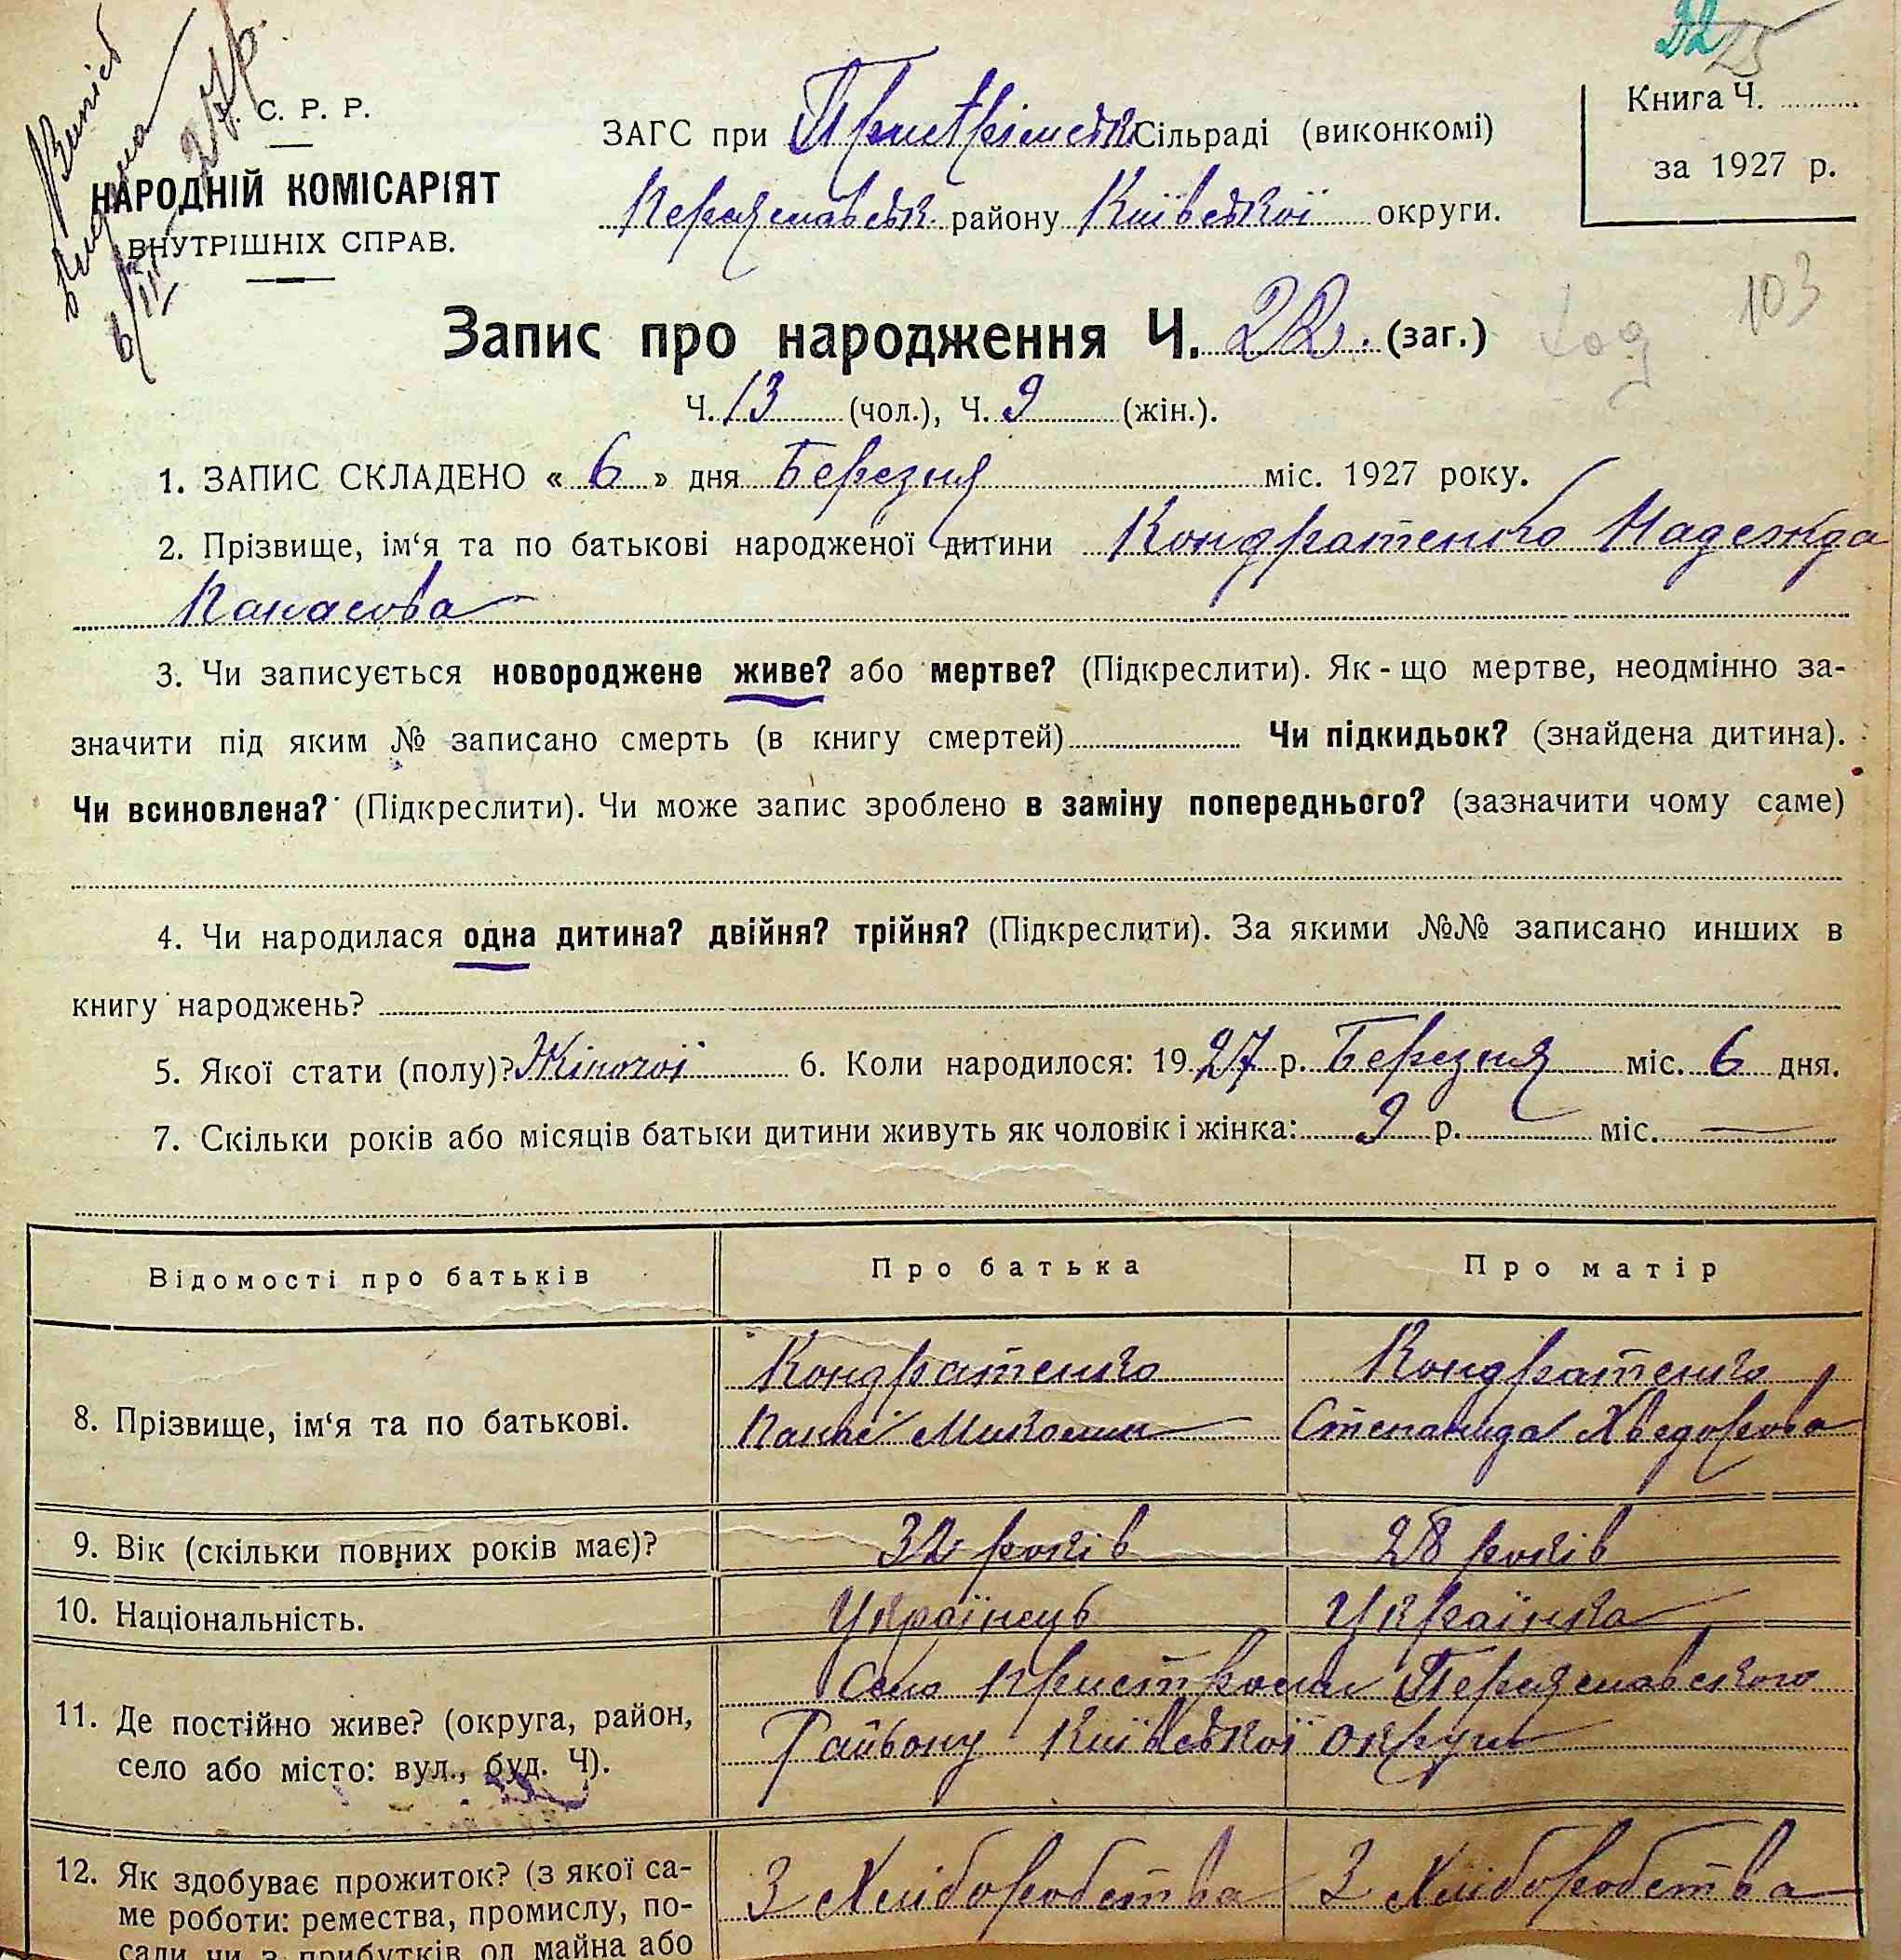 32 25
Випис
видана
6/III 27 р.
С. Р. Р.
НАРОДНІЙ КОМІСАРІЯТ
ВНУТРІШНІХ СПРАВ.
ЗАГС при Пристрімськ Сільраді (виконкомі)
Переяславськ. району Київської округи.
Книга Ч.
за 1927 р.
103
Запис про народження Ч. 22. (заг.)
Ч. 13 (чол.), Ч. 9 (жін.).
1. ЗАПИС СКЛАДЕНО « 6 » дня Березня міс. 1927 року.
2. Прізвище, ім‘я та по батькові народженої дитини Кондратенко Надежда
Панасова
3. Чи записується новороджене живе? або мертве? (Підкреслити). Як-що мертве, неодмінно за-
значити під яким № записано смерть (в книгу смертей) Чи підкидьок? (знайдена дитина).
Чи всиновлена? (Підкреслити). Чи може запис зроблено в заміну попереднього? (зазначити чому саме)
4. Чи народилася одна дитина? двійня? трійня? (Підкреслити). За якими №№ записано инших в
книгу народжень?
5. Якої стати (полу)? Жіночої 6. Коли народилося: 1927 р. Березня міс. 6 дня.
7. Скільки років або місяців батьки дитини живуть як чоловік і жінка: 9 р. міс. —
Відомості про батьків Про батька Про матір
8. Прізвище, ім‘я та по батькові.
Кондратенко Кондратенко
Панас Миколин Степанида Хведорова
9. Вік (скільки повних років має)? 32 років 28 років
10. Національність. Українець Українка
11. Де постійно живе? (округа, район,
село або місто: вул., буд. Ч).
Село Пристроми Переяславского
Району Київської округи
12. Як здобуває прожиток? (з якої са-
ме роботи: ремества, промислу, по-
сади чи з прибутків од майна або
З Хліборобства З Хліборобства